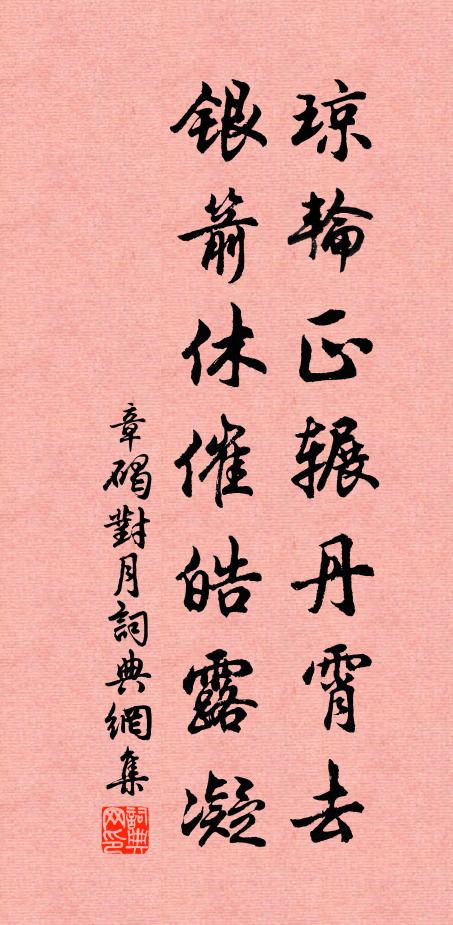 琼輪正辗丹霄去
银箭休催皓露凝
章碣對月詞典網集
詞典网印